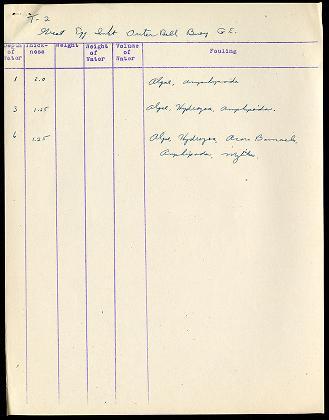 II-2
Great Egg Inlt Outer Bell Buoy G.E.
Depth of Water Thick-ness Weight Weight of Water Volume of Water Fouling
1 2.0 Algae, amphipoda
3 1.25 Algae, Hydrozoa, Amphipoda.
6 1.25 Algae, Hydrozoa, Acorn Barnacle,
Amphipoda,